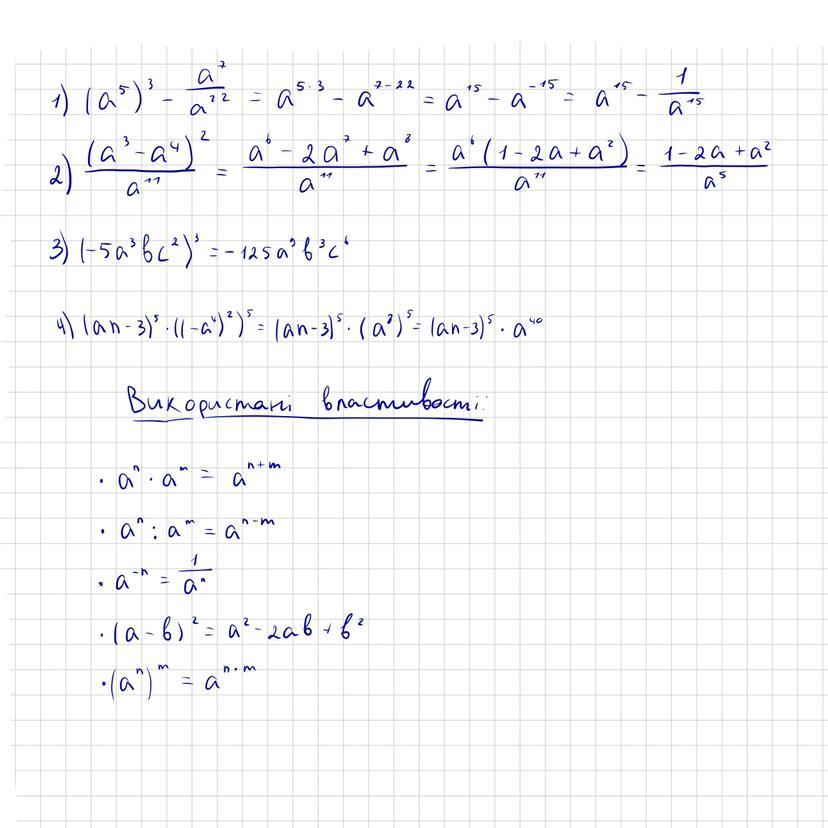 1) (a⁵)³ - a⁷/a²² = a⁵·³ - a⁷⁻²² = a¹⁵ - a⁻¹⁵ = a¹⁵ - 1/a¹⁵
2) (a³ - a⁴)²/a¹¹ = (a⁶ - 2a⁷ + a⁸)/a¹¹ = a⁶(1 - 2a + a²)/a¹¹ = (1 - 2a + a²)/a⁵
3) (-5a³bc²)³ = -125a⁹b³c⁶
4) (an-3)⁵ · ((-a⁴)²)⁵ = (an-3)⁵ · (a⁸)⁵ = (an-3)⁵ · a⁴⁰
Використані властивості:
· aⁿ · aᵐ = aⁿ⁺ᵐ
· aⁿ : aᵐ = aⁿ⁻ᵐ
· a⁻ⁿ = 1/aⁿ
· (a - b)² = a² - 2ab + b²
· (aⁿ)ᵐ = aⁿ·ᵐ